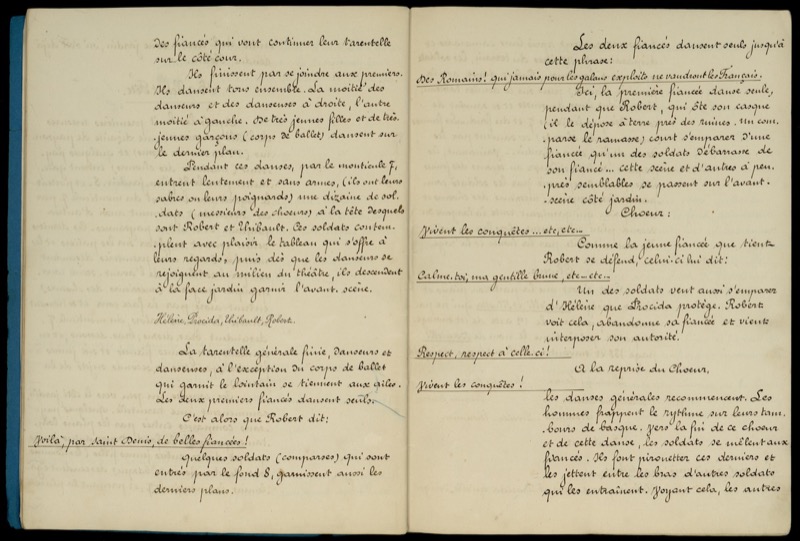 des fiancés qui vont continuer leur tarentelle
sur le côté cour.
Ils finissent par se joindre aux premiers.
Ils dansent tous ensemble. La moitié des
danseurs et des danseuses à droite, l'autre
moitié à gauche. De très jeunes filles et de très
jeunes garçons (corps de ballet) dansent sur
le dernier plan.
Pendant ces danses, par le monticule 7,
entrent lentement et sans armes, (ils ont leurs
sabres ou leurs poignards) une dizaine de sol-
dats (messieurs des chœurs) à la tête desquels
sont Robert et Thibault. Ces soldats contem-
plent avec plaisir le tableau qui s'offre à
leurs regards, puis dès que les danseurs se
rejoignent au milieu du théâtre, ils descendent
à la face jardin garnir l'avant-scène.
Hélène, Procida, Thibault, Robert.
La tarentelle générale finie, danseurs et
danseuses, à l'exception du corps de ballet
qui garnit le lointain se tiennent aux ailes.
Les deux premiers fiancés dansent seuls.
C'est alors que Robert dit:
Voilà, par Saint Denis, de belles fiancées!
Quelques soldats (comparses) qui sont
entrés par le fond 8, garnissent aussi les
derniers plans.
Les deux fiancés dansent seuls jusqu'à
cette phrase:
Des Romains! qui jamais pour les galans exploits ne vaudront les Français.
Ici, la première fiancée danse seule,
pendant que Robert, qui ôte son casque
(il le dépose à terre près des ruines. Un com-
parse le ramasse) court s'emparer d'une
fiancée qu'un des soldats débarrasse de
son fiancé... cette scène et d'autres à peu
près semblables se passent sur l'avant-
scène côté jardin.
Chœur:
Vivent les conquêtes... etc, etc...
Comme la jeune fiancée que tient
Robert se défend, celui-ci lui dit:
Calme-toi, ma gentille brune, etc... etc...
Un des soldats veut aussi s'emparer
d'Hélène que Procida protège. Robert
voit cela, abandonne sa fiancée et vient
interposer son autorité.
Respect, respect à celle-ci!
A la reprise du Chœur,
Vivent les conquêtes!
les danses générales recommencent. Les
hommes frappent le rythme sur leurs tam-
bours de basque. Vers la fin de ce chœur
et de cette danse, les soldats se mêlent aux
fiancés. Ils font pirouetter ces derniers et
les jettent entre les bras d'autres soldats
qui les entraînent. Voyant cela, les autres